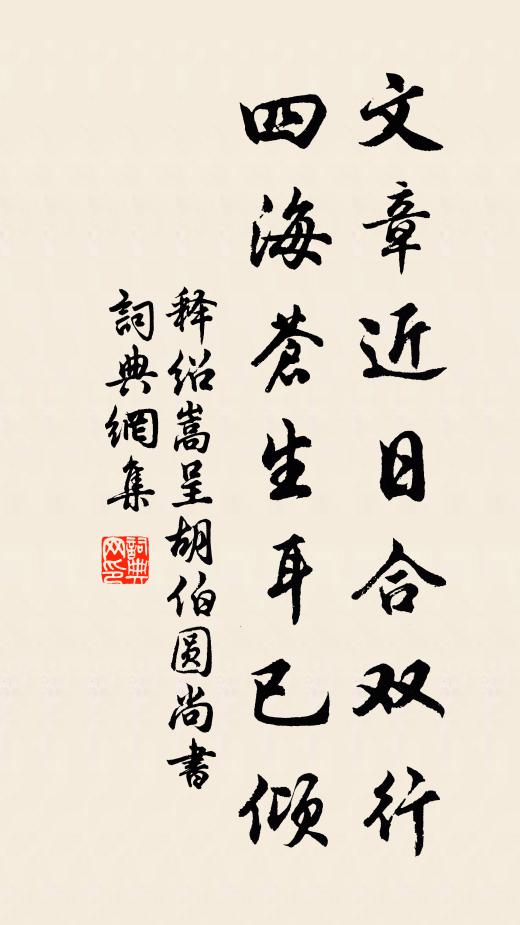 文章近日合双行
四海蒼生耳已傾
释绍嵩呈胡伯圆尚書
詞典網集
詞典
网印